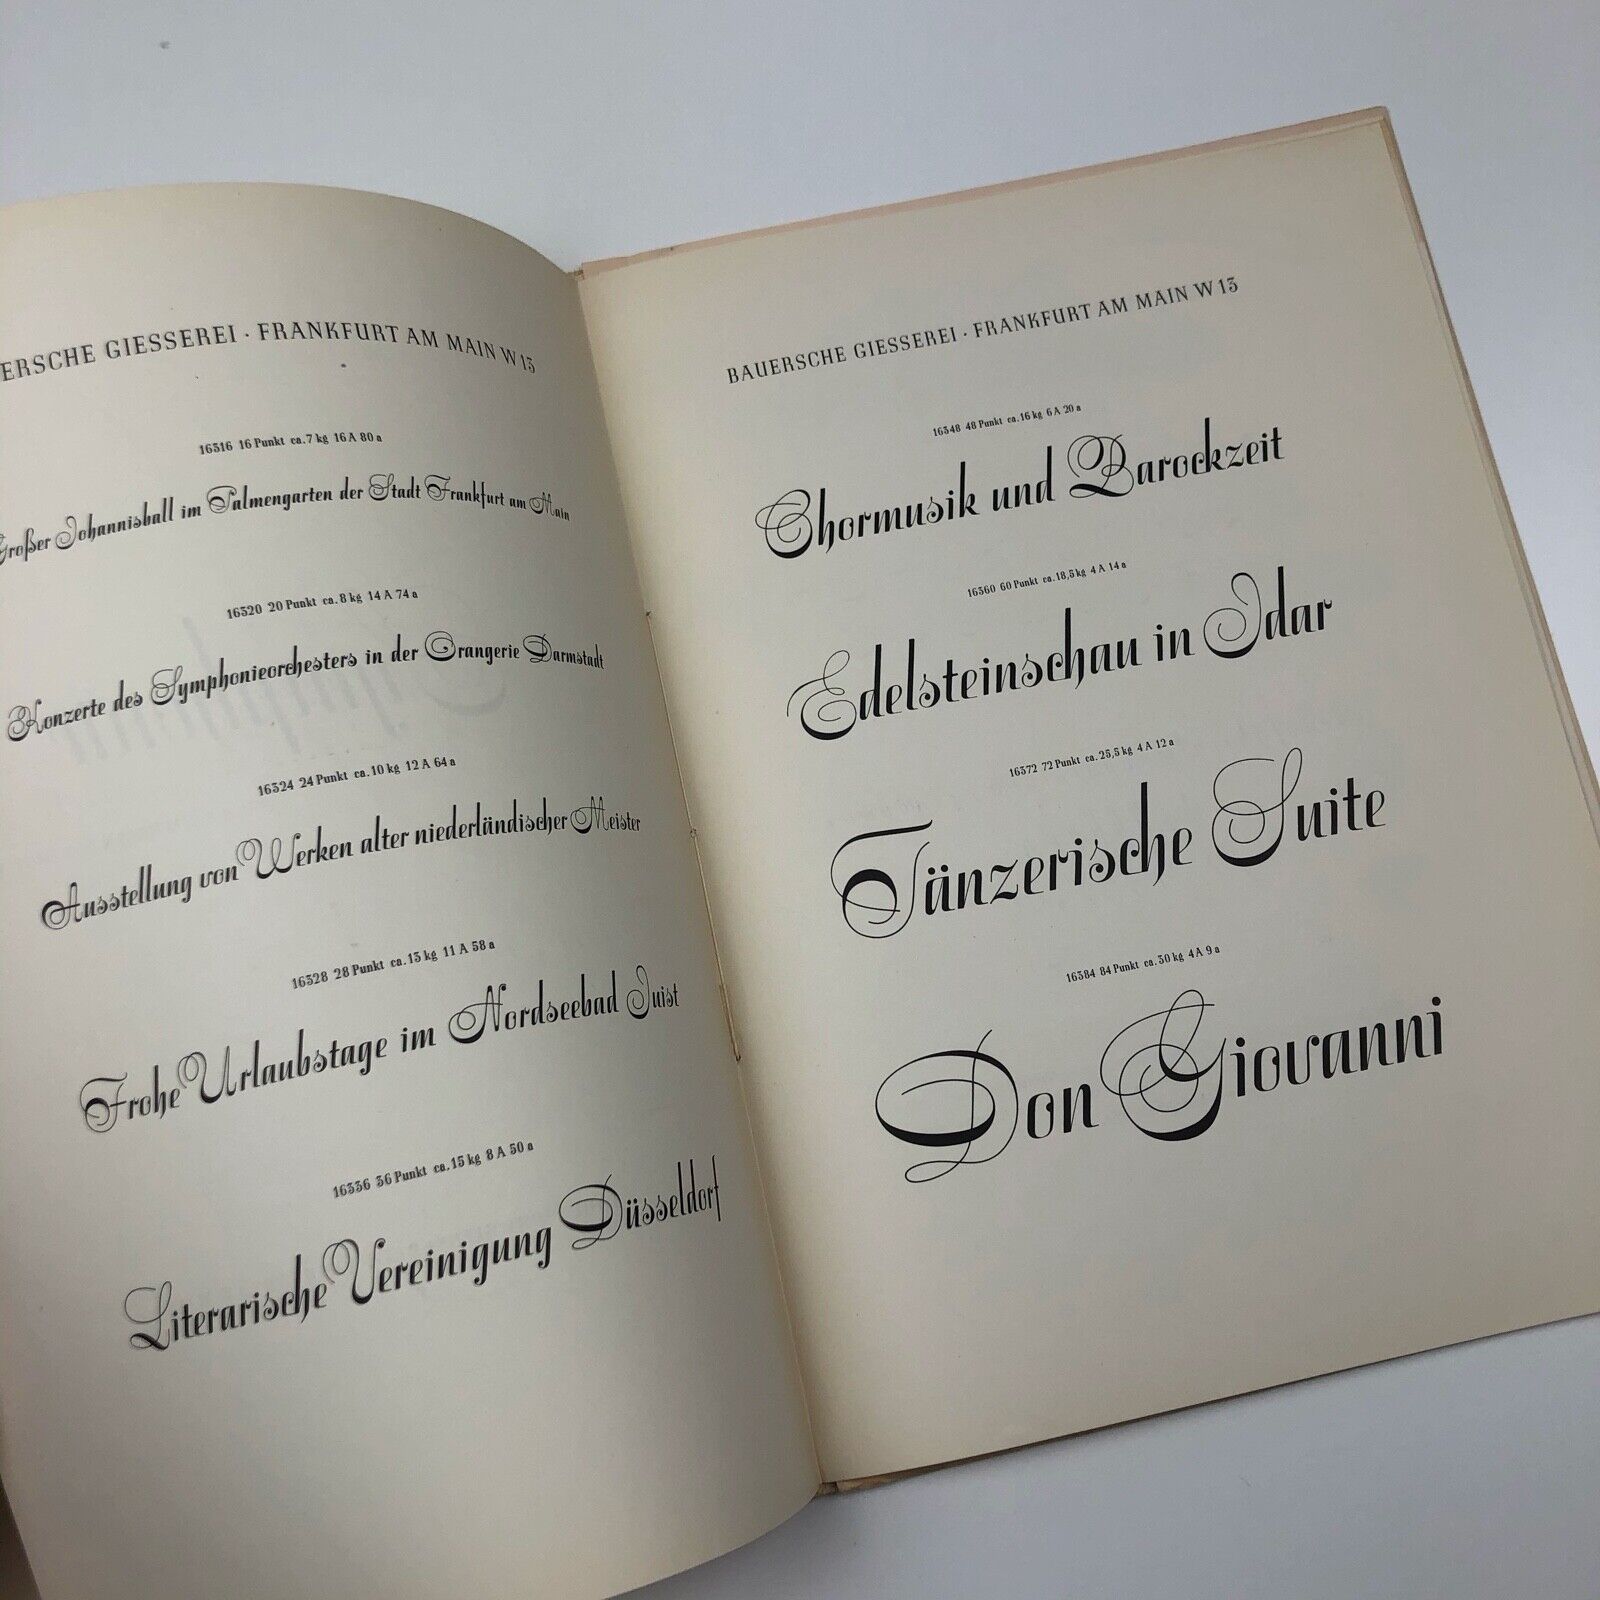 ERSCHE GIESSEREI · FRANKFURT AM MAIN W 13
16316 16 Punkt ca. 7 kg 16 A 80 a
Großer Johannisball im Palmengarten der Stadt Frankfurt am Main
16320 20 Punkt ca. 8 kg 14 A 74 a
Konzerte des Symphonieorchesters in der Orangerie Darmstadt
16324 24 Punkt ca. 10 kg 12 A 64 a
Ausstellung von Werken alter niederländischer Meister
16328 28 Punkt ca. 13 kg 11 A 58 a
Frohe Urlaubstage im Nordseebad Juist
16336 36 Punkt ca. 15 kg 8 A 50 a
Literarische Vereinigung Düsseldorf
BAUERSCHE GIESSEREI · FRANKFURT AM MAIN W 13
16348 48 Punkt ca. 16 kg 6 A 20 a
Chormusik und Barockzeit
16360 60 Punkt ca. 18,5 kg 4 A 14 a
Edelsteinschau in Idar
16372 72 Punkt ca. 25,5 kg 4 A 12 a
Tänzerische Suite
16384 84 Punkt ca. 30 kg 4 A 9 a
Don Giovanni